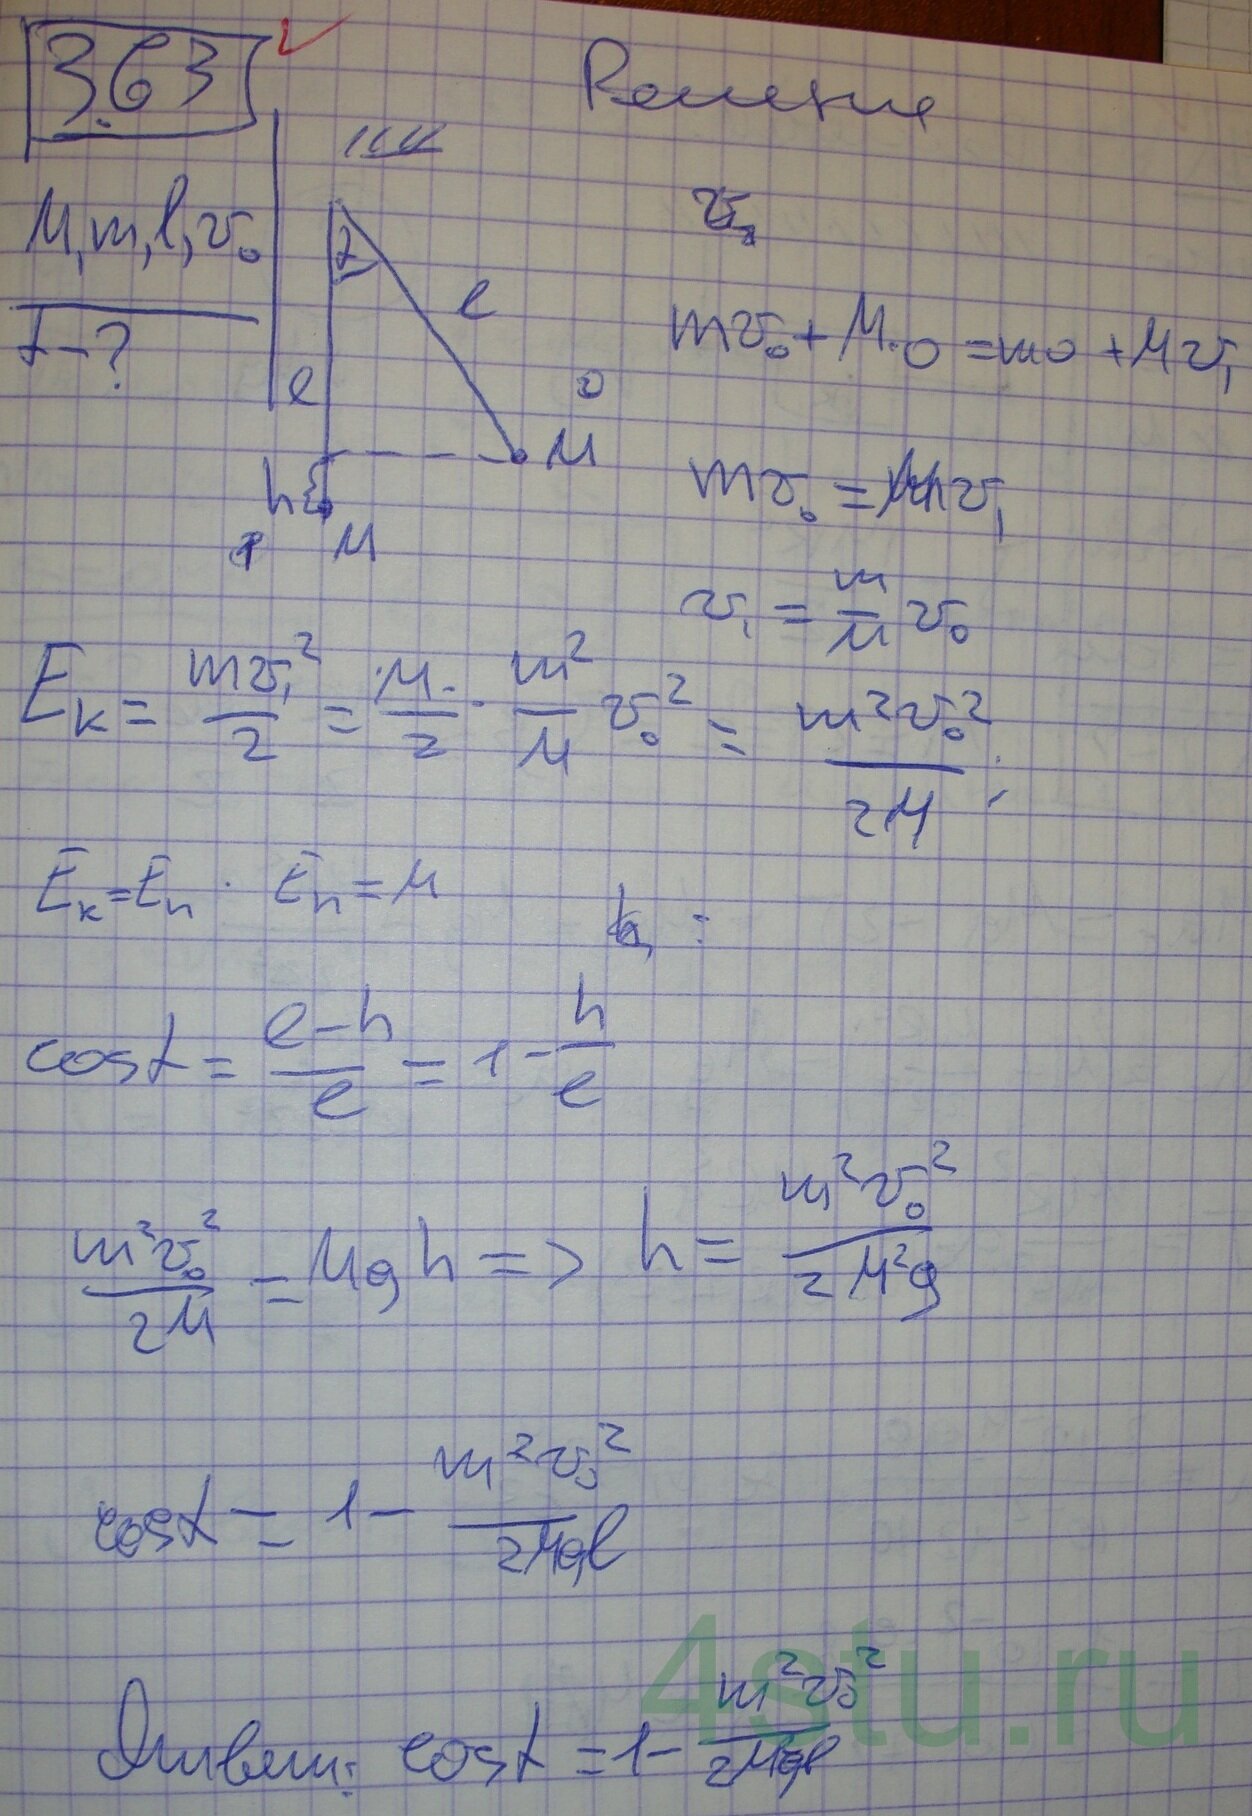 3.63
Решение
M, m, l, v₀
α - ?
α
l
l
0
h
M
M
mv₀ + M·0 = m0 + Mv₁
mv₀ = Mv₁
v₁ = m/M v₀
Eк = mv₁²/2 = M/2 · m²/M v₀² = m²v₀²/2M ;
Eк = Eп . Eп = M
cosα = l-h/l = 1 - h/l
m²v₀²/2M = Mgh => h = m²v₀²/2M²g
cosα = 1 - m²v₀²/2Mgl
Ответ: cosα = 1 - m²v₀²/2Mgl
4stu.ru